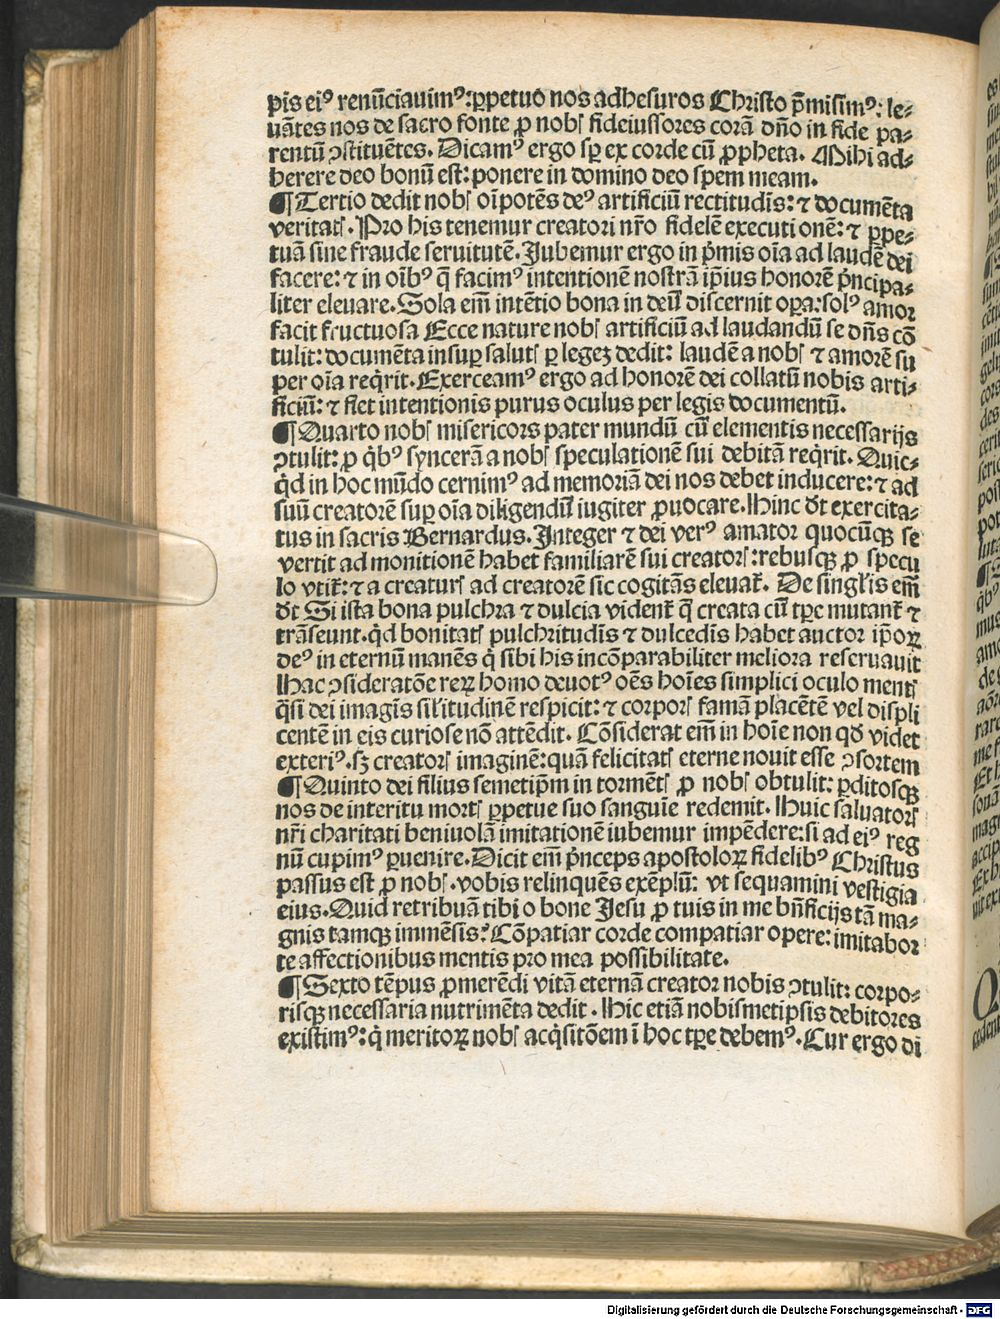 pis eiꝰ renūciauimꝰ: ꝑpetuo nos adhesuros Christo p̄misimꝰ: le⸗
uātes nos de sacro fonte ꝓ nobꝭ fideiussores corā dn̄o in fide pa⸗
rentū ꝯstituētes. Dicamꝰ ergo sꝑ ex corde cū ꝓpheta. Mihi ad⸗
herere deo bonū est: ponere in domino deo spem meam.
¶Tertio dedit nobꝭ oīpotēs deꝰ artificiū rectitudīs: ⁊ documēta
veritatꝭ. Pro his tenemur creatori nr̄o fidelē executi onē: ⁊ ꝑpe⸗
tuā sine fraude seruitutē. Jubemur ergo in p̄mis oīa ad laudē dei
facere: ⁊ in oībꝰ q̄ facimꝰ intentionē nostrā ip̄ius honorē p̄ncipa⸗
liter eleuare. Sola em̄ intētio bona in deū discernit oꝑa: solꝰ amor
facit fructuosa Ecce nature nobꝭ artificiū ad laudandū se dn̄s cō
tulit: documēta insuꝑ salutꝭ ꝑ legeꝫ dedit: laudē a nobꝭ ⁊ amorē su
per oīa req̄rit. Exerceamꝰ ergo ad honorē dei collatū nobis arti⸗
ficiū: ⁊ fiet intentionis purus oculus per legis documentū.
¶Quarto nobꝭ misericors pater mundū cū elementis necessarijs
ꝯtulit: ꝓ q̄bꝰ syncerā a nobꝭ speculationē sui debitā req̄rit. Quic⸗
q̄d in hoc mūdo cernimꝰ ad memoriā dei nos debet inducere: ⁊ ad
suū creatorē suꝑ oīa diligendū iugiter ꝓuocare. Hinc dt̄ exercita⸗
tus in sacris Bernardus. Integer ⁊ dei verꝰ amator quocūqꝫ se
vertit ad monitionē habet familiarē sui creatorꝭ: rebusqꝫ ꝓ specu
lo vtit̄: ⁊ a creaturꝭ ad creatorē sic cogitās eleuat̄. De singl̄is em̄
dt̄ Si ista bona pulchra ⁊ dulcia vident̄ q̄ creata cū tꝑe mutant̄ ⁊
trāseunt. qd̄ bonitatꝭ pulchritudīs ⁊ dulcedīs habet auctor ip̄oꝝ
deꝰ in eternū manēs q̄ sibi his incōparabiliter meliora reseruauit
Hac ꝯsideratōe reꝝ homo deuotꝰ oēs hoīes simplici oculo mentꝭ
q̄si dei imagīs sil̄itudinē respicit: ⁊ corporꝭ famā placētē vel displi
centē in eis curiose nō attēdit. Cōsiderat em̄ in hoīe non qd̄ videt
exteriꝰ. sꝫ creatorꝭ imaginē: quā felicitatꝭ eterne nouit esse ꝯsortem
¶Quinto dei filius semetip̄m in tormētꝭ ꝓ nobꝭ obtulit: ꝑditosqꝫ
nos de interitu mortꝭ ꝑpetue suo sanguīe redemit. Huic saluatorꝭ
nr̄i charitati beniuolā imitationē iubemur impēdere: si ad eiꝰ reg
nū cupimꝰ ꝑuenire. Dicit em̄ p̄nceps apostoloꝝ fidelibꝰ Christus
passus est ꝓ nobꝭ. vobis relinquēs exēplū: vt sequamini vestigia
eius. Quid retribuā tibi o bone Jesu ꝓ tuis in me bn̄ficijs tā ma⸗
gnis tamqꝫ immēsis? Cōpatiar corde compatiar opere: imitabor
te affectionibus mentis pro mea possibilitate.
¶Sexto tēpus ꝓmerēdi vitā eternā creator nobis ꝯtulit: corpo⸗
risqꝫ necessaria nutrimēta dedit. Hic etiā nobismetipsis debitores
existimꝰ: q̄ meritoꝝ nobꝭ acq̄sitōem ī hoc tꝑe debemꝰ. Cur ergo di
Digitalisierung gefördert durch die Deutsche Forschungsgemeinschaft - DFG